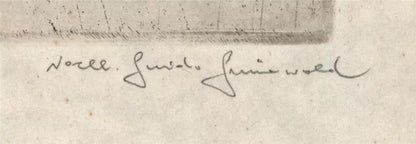 Noell. Guido Grünewald